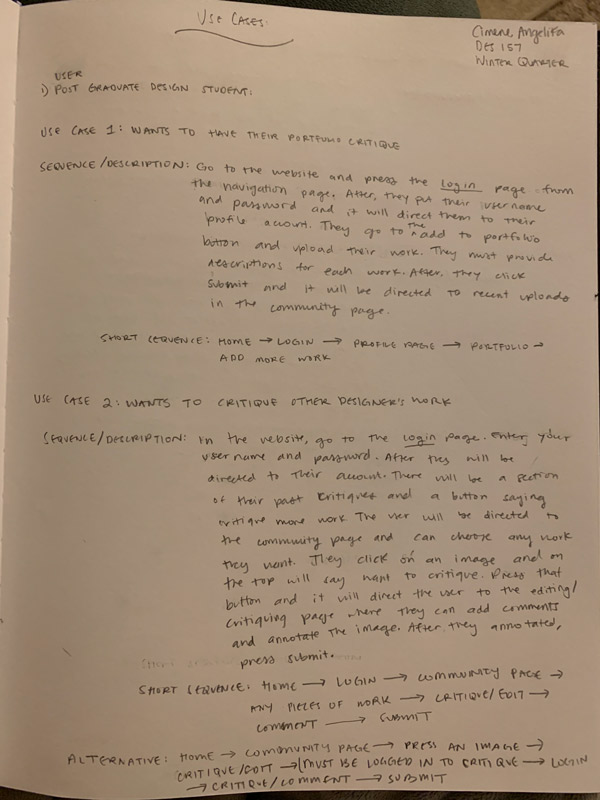 USE CASES:
Cimene, Angelifa
DES 157
WINTER QUARTER
USER
1) POST GRADUATE DESIGN STUDENT:
USE CASE 1: WANTS TO HAVE THEIR PORTFOLIO CRITIQUE
SEQUENCE/DESCRIPTION: Go to the website and press the login page from
the navigation page. After, they put their username
and password and it will direct them to their
profile account. They go to the add to portfolio
button and upload their work. They must provide
descriptions for each work. After, they click
submit and it will be directed to recent uploads
in the community page.
SHORT SEQUENCE: HOME → LOGIN → PROFILE PAGE → PORTFOLIO →
ADD MORE WORK
USE CASE 2: WANTS TO CRITIQUE OTHER DESIGNER'S WORK
SEQUENCE/DESCRIPTION: In the website, go to the login page. Enter your
user name and password. After they will be
directed to their account. There will be a section
of their past critiques and a button saying
critique more work The user will be directed to
the community page and can choose any work
they want. They click on an image and on
the top will say want to critique. Press that
button and it will direct the user to the editing/
critiquing page where they can add comments
and annotate the image. After they annotated,
press submit.
SHORT SEQUENCE: HOME → LOGIN → COMMUNITY PAGE →
ANY PIECES OF WORK → CRITIQUE/EDIT →
COMMENT → SUBMIT
ALTERNATIVE: HOME → COMMUNITY PAGE → PRESS AN IMAGE →
CRITIQUE/EDIT → (MUST BE LOGGED IN TO CRITIQUE → LOGIN
→ CRITIQUE/COMMENT → SUBMIT